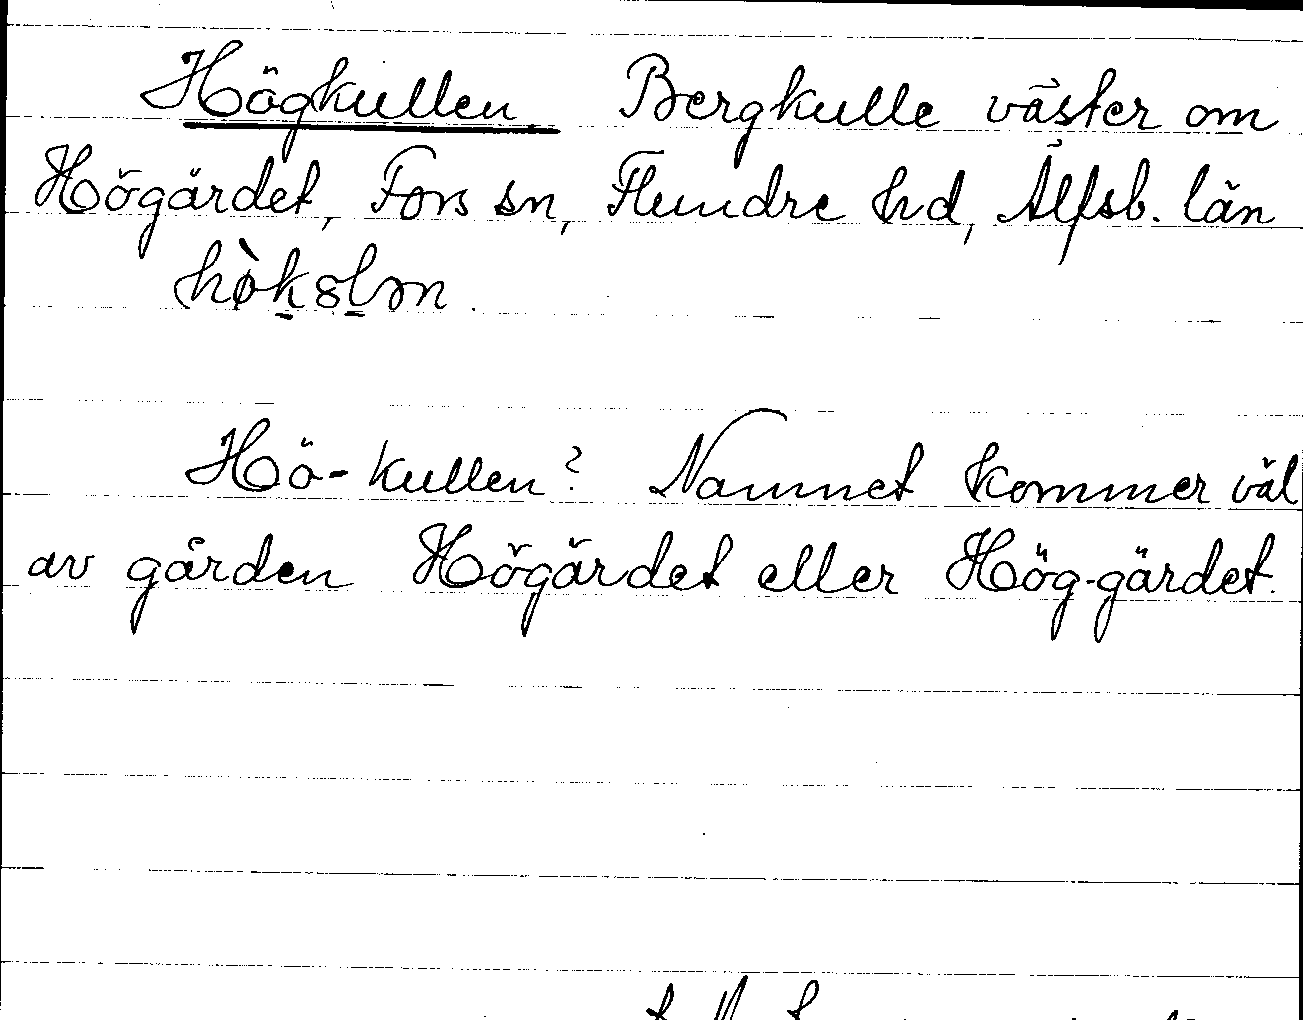 Högkullen Bergkulle väster om
Högärdet, Fors sn, Flundre hd, Älfsb. län
Hö-kullen? Namnet kommer väl
av gården Högärdet eller Hög-gärdet.